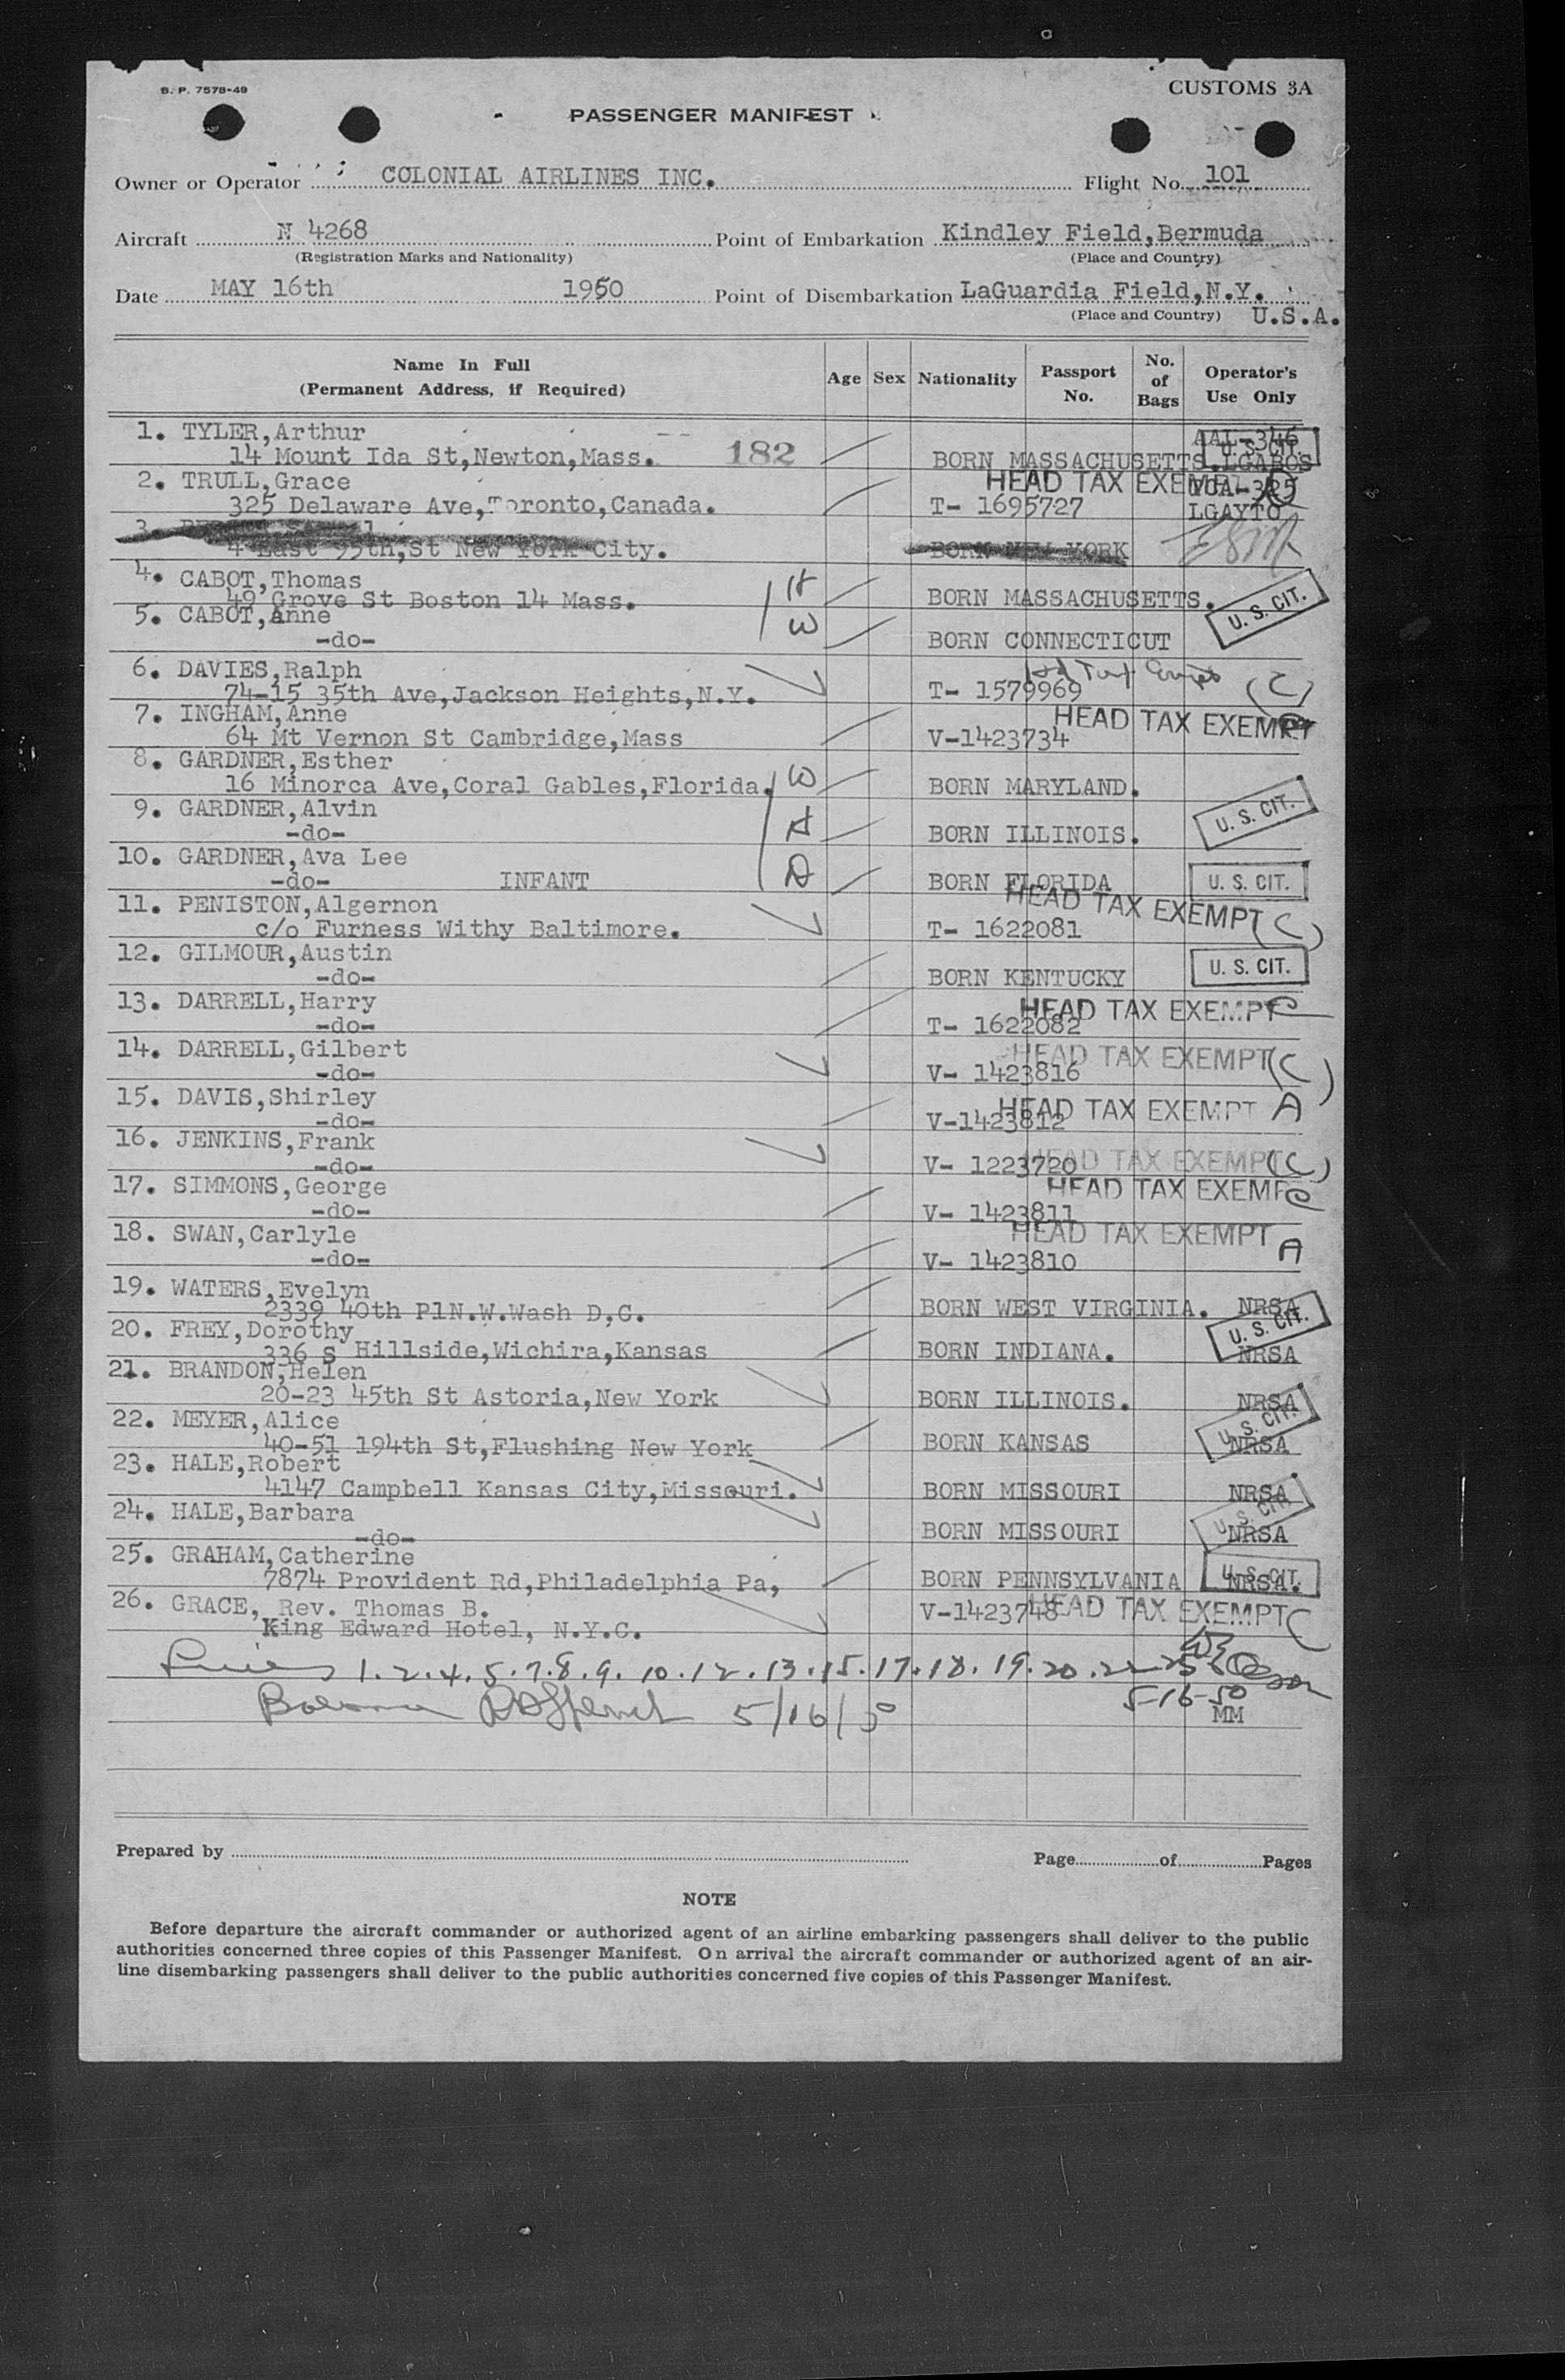 B. P. 7578-49
CUSTOMS 3A
PASSENGER MANIFEST
Owner or Operator COLONIAL AIRLINES INC. Flight No. 101
Aircraft N 4268 Point of Embarkation Kindley Field,Bermuda
(Registration Marks and Nationality) (Place and Country)
Date MAY 16th 1950 Point of Disembarkation LaGuardia Field,N.Y.
(Place and Country) U.S.A.
Name In Full
(Permanent Address, if Required)
Age Sex Nationality Passport No. No. of Bags Operator's Use Only
1. TYLER,Arthur AAL-346
14 Mount Ida St,Newton,Mass. 182 BORN MASSACHUSETTS.LGABOS U. S. CIT.
2. TRULL,Grace HEAD TAX EXEMPT TCA-325
325 Delaware Ave,Toronto,Canada. T- 1695727 LGAYTO
3.
4 East 95th,St New York City. BORN NEW YORK
4. CABOT,Thomas H
49 Grove St Boston 14 Mass. BORN MASSACHUSETTS. U. S. CIT.
5. CABOT,Anne W
-do- BORN CONNECTICUT
6. DAVIES,Ralph
74-15 35th Ave,Jackson Heights,N.Y. T- 1579969 (C)
7. INGHAM,Anne HEAD TAX EXEMPT
64 Mt Vernon St Cambridge,Mass V-1423734
8. GARDNER,Esther W
16 Minorca Ave,Coral Gables,Florida. BORN MARYLAND.
9. GARDNER,Alvin H U. S. CIT.
-do- BORN ILLINOIS.
10. GARDNER,Ava Lee D
-do- INFANT BORN FLORIDA U. S. CIT.
11. PENISTON,Algernon HEAD TAX EXEMPT (C)
c/o Furness Withy Baltimore. T- 1622081
12. GILMOUR,Austin
-do- BORN KENTUCKY U. S. CIT.
13. DARRELL,Harry HEAD TAX EXEMPT C
-do- T- 1622082
14. DARRELL,Gilbert HEAD TAX EXEMPT (C)
-do- V- 1423816
15. DAVIS,Shirley HEAD TAX EXEMPT A
-do- V-1423812
16. JENKINS,Frank
-do- V- 1223720 HEAD TAX EXEMPT (C)
17. SIMMONS,George HEAD TAX EXEMPT C
-do- V- 1423811
18. SWAN,Carlyle HEAD TAX EXEMPT A
-do- V- 1423810
19. WATERS,Evelyn
2339 40th PlN.W.Wash D,C. BORN WEST VIRGINIA. NRSA
20. FREY,Dorothy U. S. CIT.
336 S Hillside,Wichira,Kansas BORN INDIANA. NRSA
21. BRANDON,Helen
20-23 45th St Astoria,New York BORN ILLINOIS. NRSA
22. MEYER,Alice U. S. CIT.
40-51 194th St,Flushing New York BORN KANSAS NRSA
23. HALE,Robert
4147 Campbell Kansas City,Missouri. BORN MISSOURI NRSA
24. HALE,Barbara U. S. CIT.
-do- BORN MISSOURI NRSA
25. GRAHAM,Catherine
7874 Provident Rd,Philadelphia Pa, BORN PENNSYLVANIA NRSA. U. S. CIT.
26. GRACE, Rev. Thomas B. V-1423748 HEAD TAX EXEMPT C
King Edward Hotel, N.Y.C.
1.2.4.5.7.8.9.10.12.13.15.17.18.19.20.22-25
5/16/50 5-16-50
MM
Prepared by Page of Pages
NOTE
Before departure the aircraft commander or authorized agent of an airline embarking passengers shall deliver to the public
authorities concerned three copies of this Passenger Manifest. On arrival the aircraft commander or authorized agent of an air-
line disembarking passengers shall deliver to the public authorities concerned five copies of this Passenger Manifest.